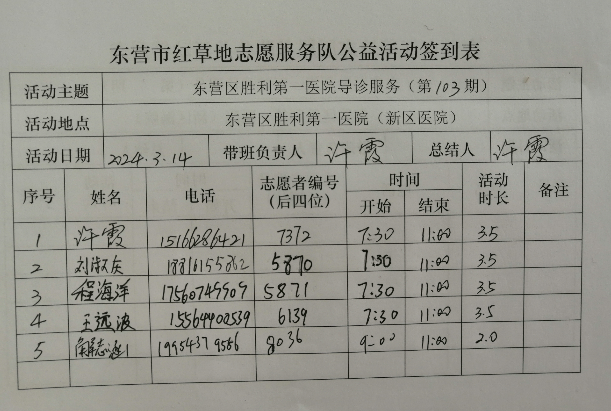 东营市红草地志愿服务队公益活动签到表
活动主题 东营区胜利第一医院导诊服务（第103期）
活动地点 东营区胜利第一医院（新区医院）
活动日期 2024.3.14 带班负责人 许霞 总结人 许霞
序号 姓名 电话 志愿者编号（后四位） 时间 开始 结束 活动时长 备注
1 许霞 15166286421 7372 7:30 11:00 3.5
2 刘淑 18816155862 5870 7:30 11:00 3.5
3 程海洋 17560749909 5871 7:30 11:00 3.5
4 王远波 15564902539 6139 7:30 11:00 3.5
5 解志 19954379586 8036 9:00 11:00 2.0